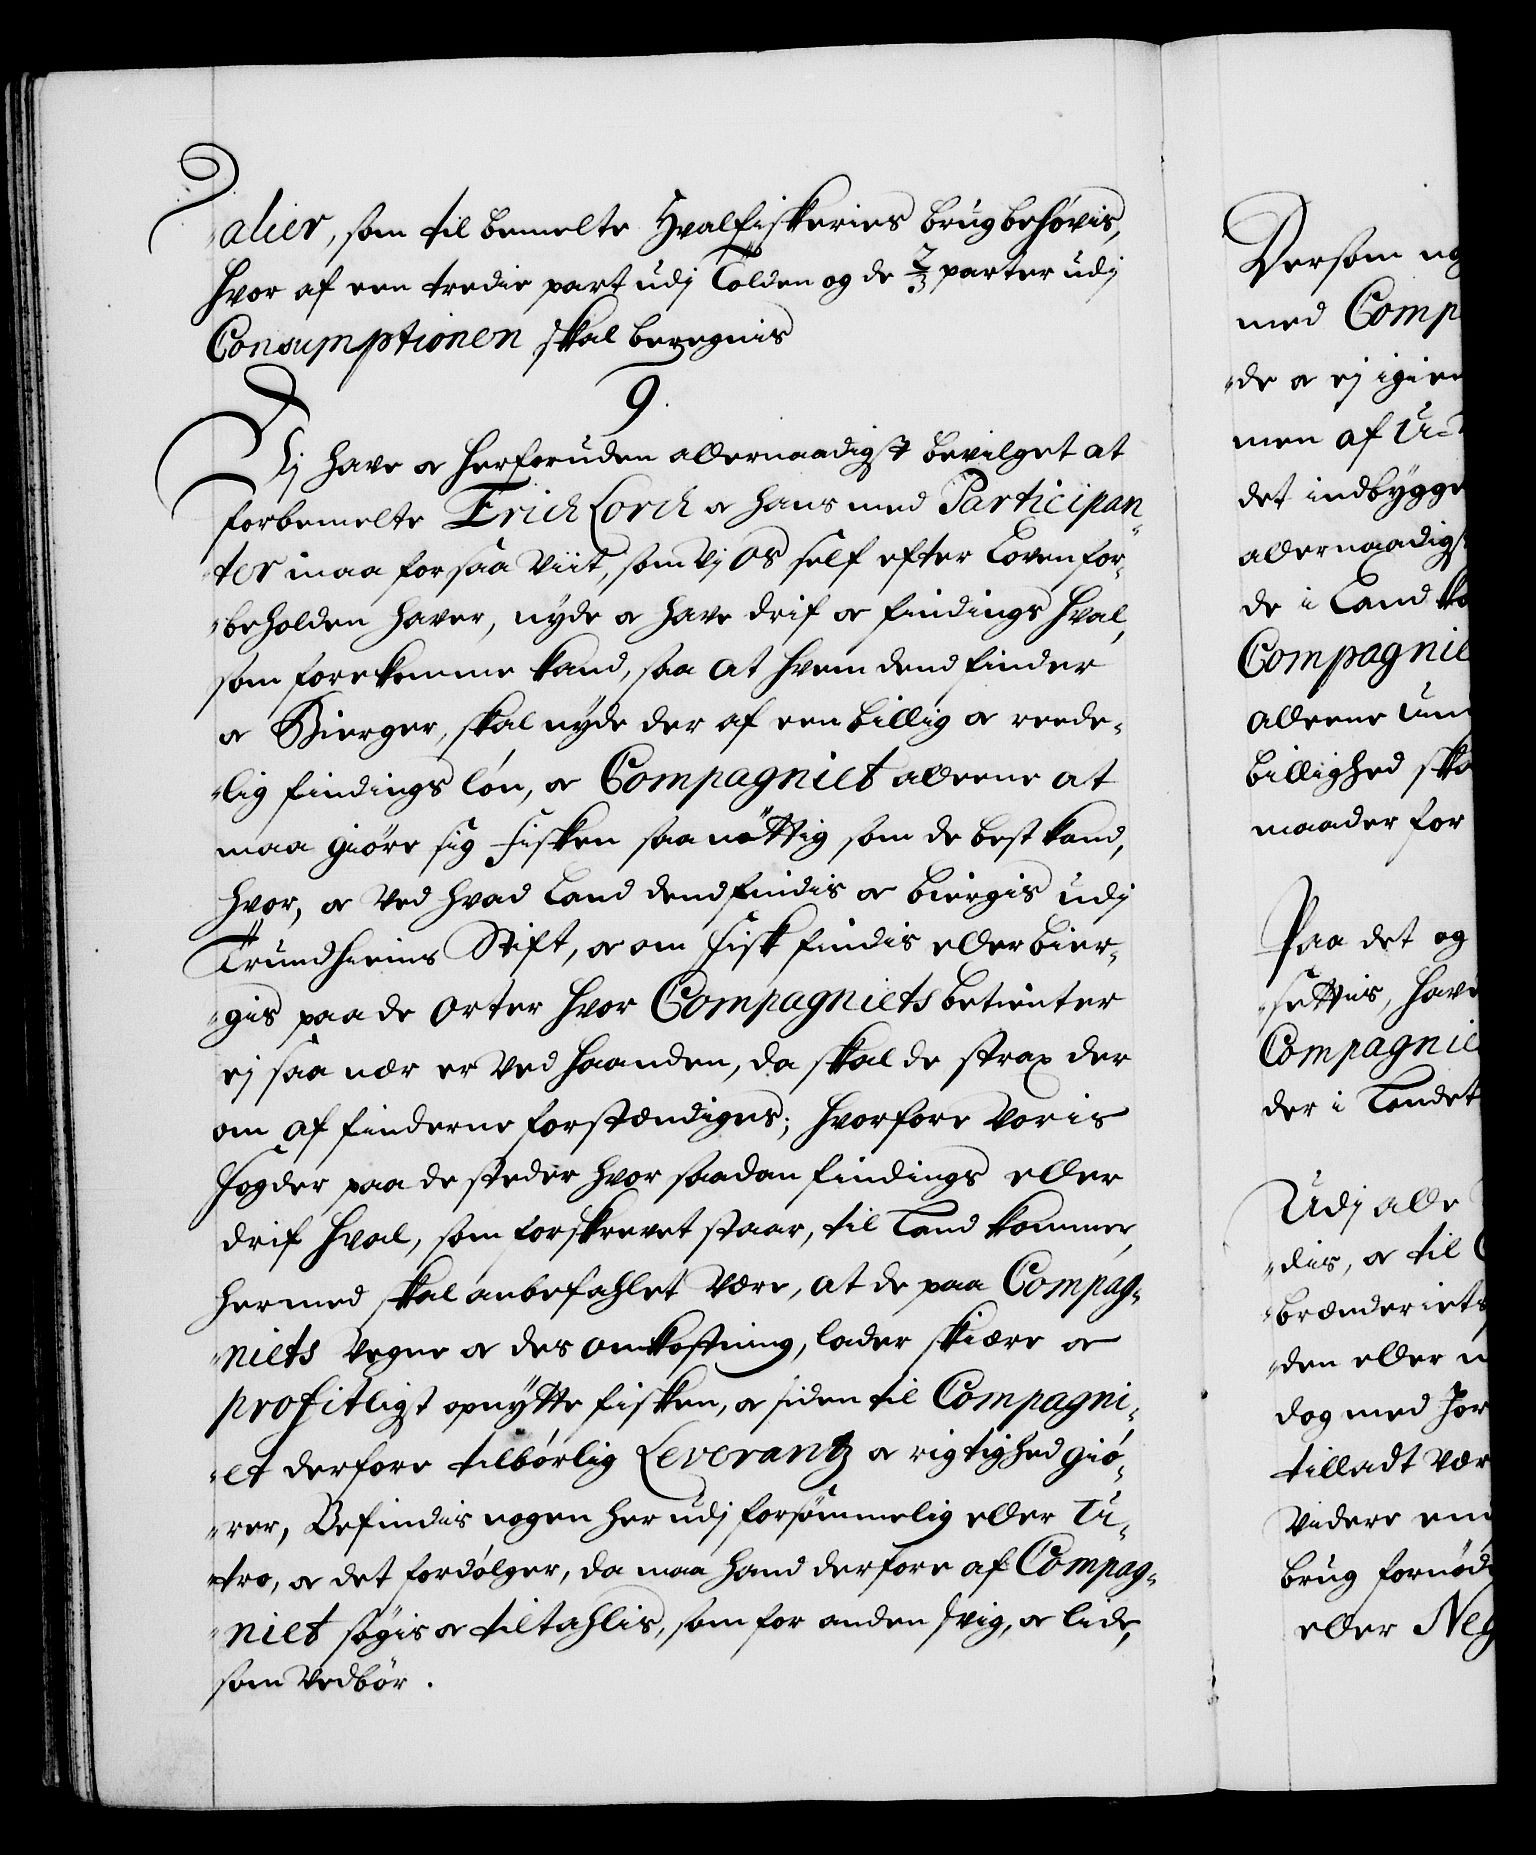 alier, som til bemelte Hvalfiskeries brug behøvis,
hvor af een tredie part udj Tolden og de 2/3 parter udj
Consumptionen skal beregnis
9.
Vj have og herforuden allernaadigst bevilget at
forbemelte Erich Lorch og hans med Participan-
ter maa forsaa viit, som vj os self efter Loven for-
beholden haver, nyde og have drif og findings hval,
som forekomme kand, saa at hvem dend finder
og Bierger, skal nyde der af een billig og reede-
lig findings løn, og Compagniet alleene at
maa giøre sig fisken saa nøttig som de best kand,
hvor, og ved hvad Land dend findis og biergis udj
Trundhiems Stift, og om fisk findis eller bier-
gis paa de orter hvor Compagniets betienter
ej saa nær er ved haanden, da skal de strax der
om af finderne forstændiges; hvorfore voris
fogder paa de steder hvor saadan findings eller
drif hval, som forskrevet staar, til Land kommer,
hermed skal anbefahlet være, at de paa Compag-
niets vegne og des omkostning, lader skiære og
profitligt opnytte fisken, og siden til Compagni-
et derfore tilbørlig Leverantz og rigtighed giø-
rer, Befindis nogen her udj forsømmelig eller U-
tro, og det fordølger, da maa hand derfore af Compag-
niet søgis og tiltahlis, som for anden svig, og lide,
som vedbør.
Dersom
med Comp
de og ej igien
men af
det indbygge
allernaadigst
de i Land
Compagnie
alleene
billighed
maader for
Paa det og
settis, have
Compagnie
der i Landet
Udj alle
dis, og til
brænderiets
den eller
dog med
tilladt vær
videre
brug fornød
eller Neg